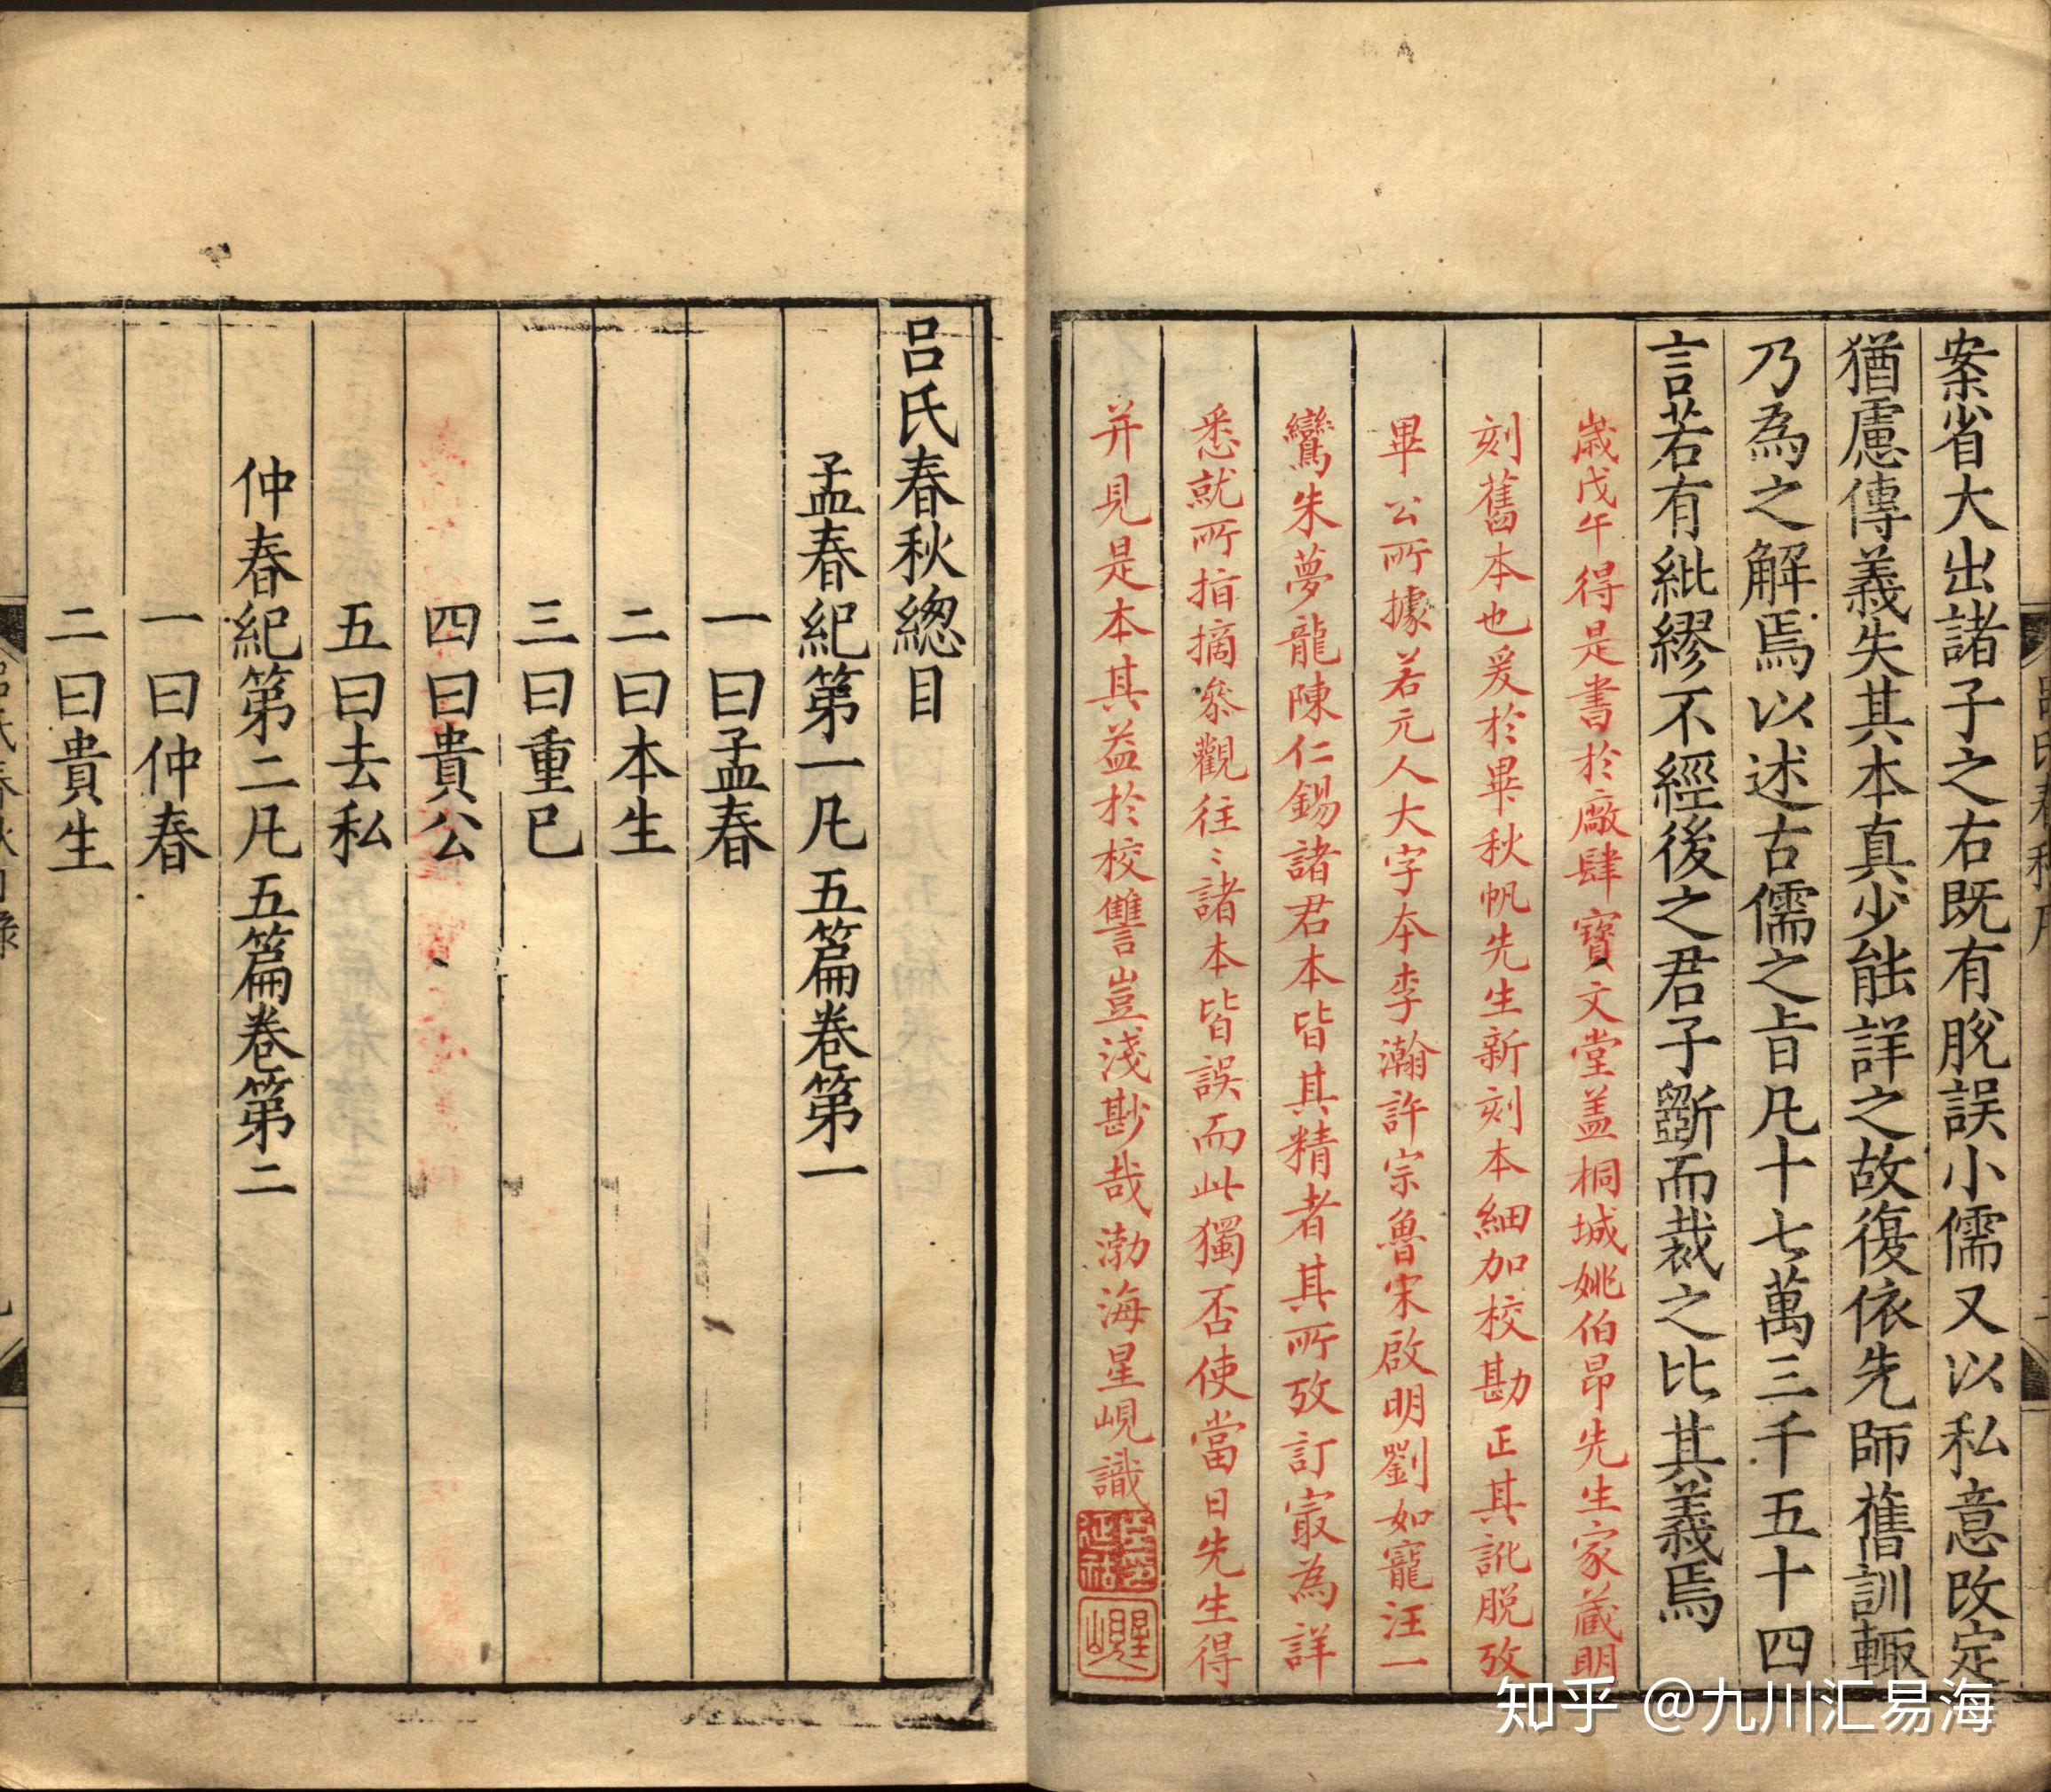 案省大出諸子之右既有脫誤小儒又以私意改定
猶慮傳義失其本真少能詳之故復依先師舊訓輒
乃為之解焉以述古儒之旨凡十七萬三千五十四
言若有紕繆不經後之君子斷而裁之比其義焉
歲戊午得是書於廠肆寶文堂盖桐城姚伯昂先生家藏明
刻舊本也爰於畢秋帆先生新刻本細加校勘正其訛脫攷
畢公所據若元人大字本李瀚許宗魯宋啟明劉如寵汪一
鸞朱夢龍陳仁錫諸君本皆其精者其所攷訂寂為詳
悉就所指摘叅觀往〻諸本皆誤而此獨否使當日先生得
并見是本其益於校讐豈淺尠哉渤海星峴識
星峴
呂氏春秋總目
孟春紀第一凡五篇卷第一
一曰孟春
二曰本生
三曰重已
四曰貴公
五曰去私
仲春紀第二凡五篇卷第二
一曰仲春
二曰貴生
知乎 @九川汇易海